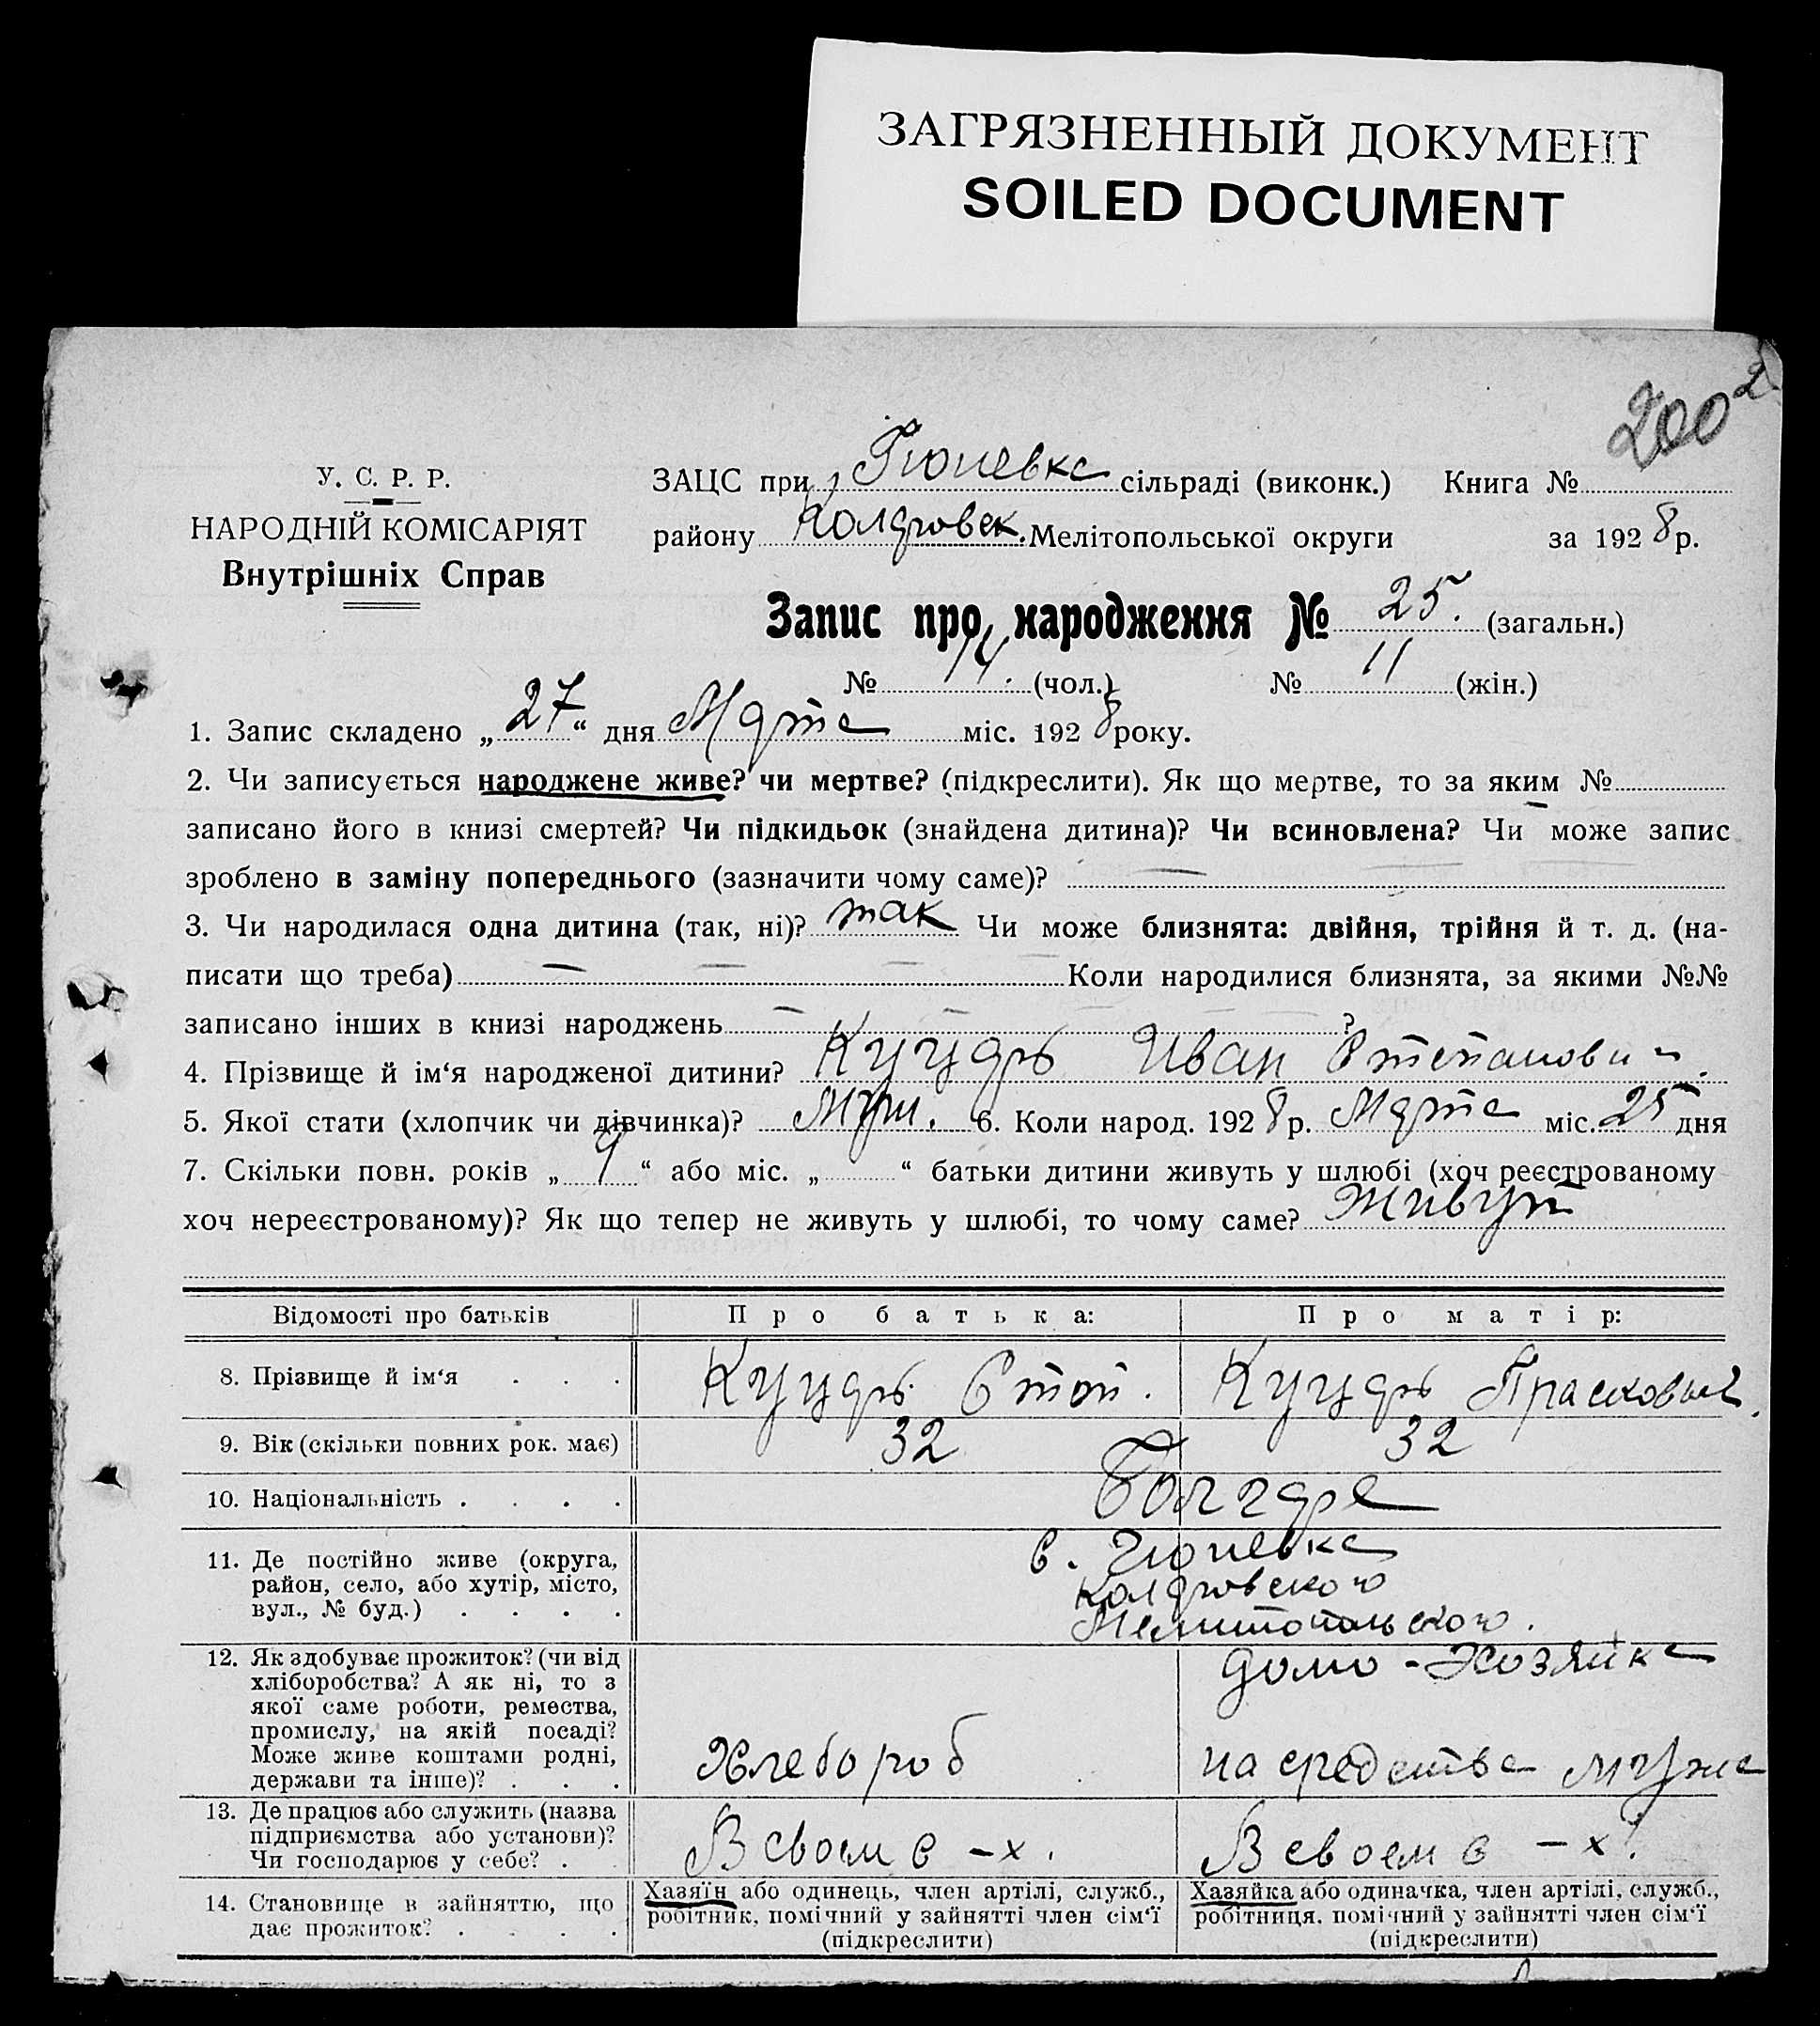 ЗАГРЯЗНЕННЫЙ ДОКУМЕНТ
SOILED DOCUMENT
200 2
У. С. Р. Р.
НАРОДНІЙ КОМІСАРІЯТ
Внутрішніх Справ
ЗАЦС при Гюневка сільраді (виконк.) Книга №
району Коларовск. Мелітопольської округи за 1928 р.
Запис про народження № 25. (загальн.)
№ 14. (чол.) № 11 (жін.)
1. Запис складено „27“ дня Марта міс. 1928 року.
2. Чи записується народжене живе? чи мертве? (підкреслити). Як що мертве, то за яким №
записано його в книзі смертей? Чи підкидьок (знайдена дитина)? Чи всиновлена? Чи може запис
зроблено в заміну попереднього (зазначити чому саме)? —
3. Чи народилася одна дитина (так, ні)? так Чи може близнята: двійня, трійня й т. д. (на-
писати що треба) — — — — Коли народилися близнята, за якими №№
записано інших в книзі народжень — — ?
4. Прізвище й ім‘я народженої дитини? Куцарь Иван Степанови
5. Якої стати (хлопчик чи дівчинка)? Муж. 6. Коли народ. 1928 р. Марта міс. 25 дня
7. Скільки повн. років „9“ або міс. „ “ батьки дитини живуть у шлюбі (хоч реєстрованому
хоч нереєстрованому)? Як що тепер не живуть у шлюбі, то чому саме? Живут
Відомості про батьків Про батька: Про матір:
8. Прізвище й ім‘я . . . Куцарь Степ. Куцарь Прасковья
9. Вік (скільки повних рок. має) 32 32
10. Національність . . . . Болгаре
11. Де постійно живе (округа, с. Гюневка
район, село, або хутір, місто, Коларовского
вул., № буд.) . . . . Мелитопольского.
12. Як здобуває прожиток? (чи від домо-Хозяйка
хліборобства? А як ні, то з
якої саме роботи, ремества,
промислу, на якій посаді?
Може живе коштами родні, Хлебороб на средства мужа
держави та інше)? . . .
13. Де працює або служить (назва
підприємства або установи)? В своем с-х. В своем с-х.
Чи господарює у себе? .
14. Становище в зайняттю, що Хазяїн або одинець, член артілі, служб., Хазяйка або одиначка, член артілі, служб.,
дає прожиток? . . . . робітник, помічний у зайнятті член сім‘ї робітниця, помічний у зайнятті член сім‘ї
(підкреслити) (підкреслити)